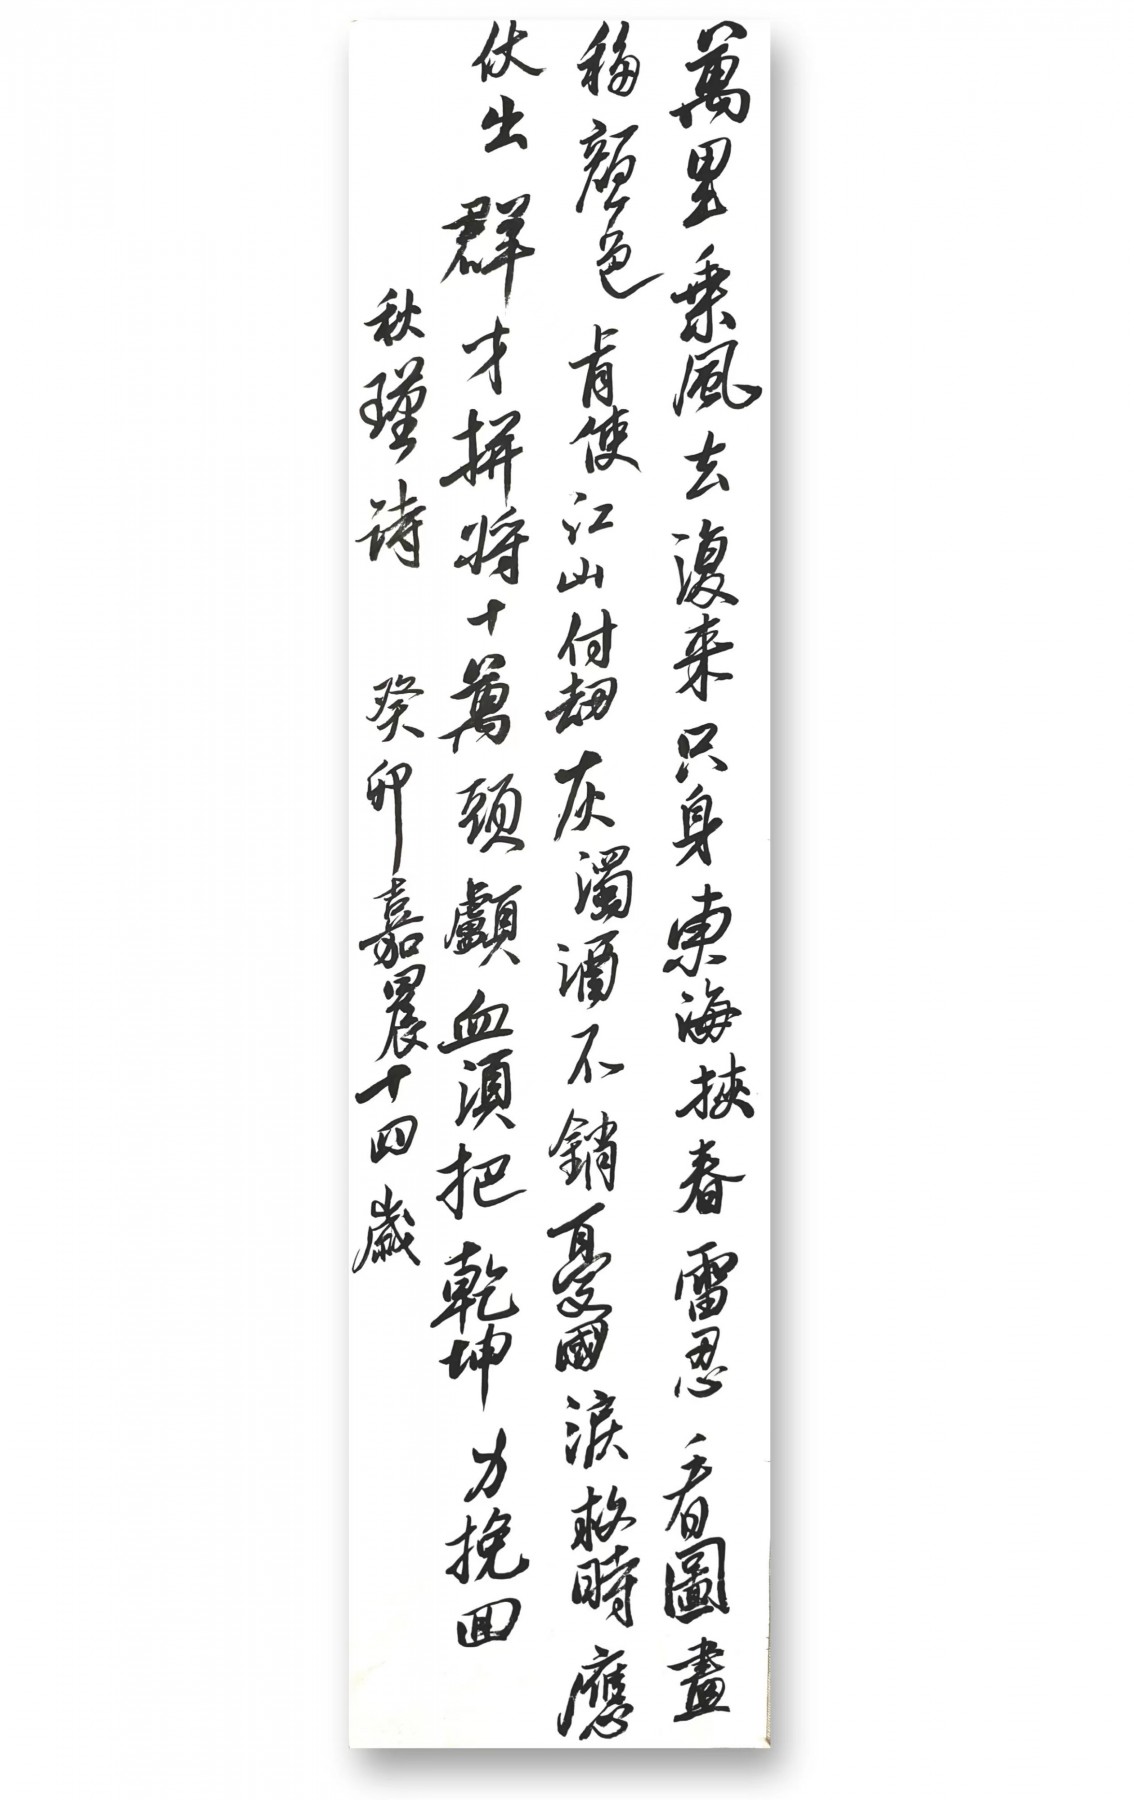 萬里乘風去復来只身東海挾春雷忍看圖畫
移顔色肯使江山付劫灰濁酒不銷憂國淚救時應
仗出群才拼將十萬頭顱血須把乾坤力挽回
秋瑾诗 癸卯嘉晨十四歲